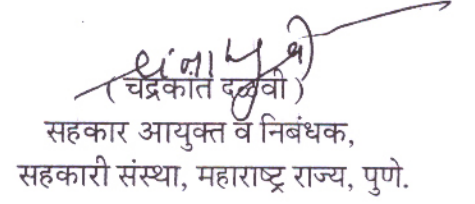 ( चंद्रकांत दळवी )
सहकार आयुक्त व निबंधक,
सहकारी संस्था, महाराष्ट्र राज्य, पुणे.